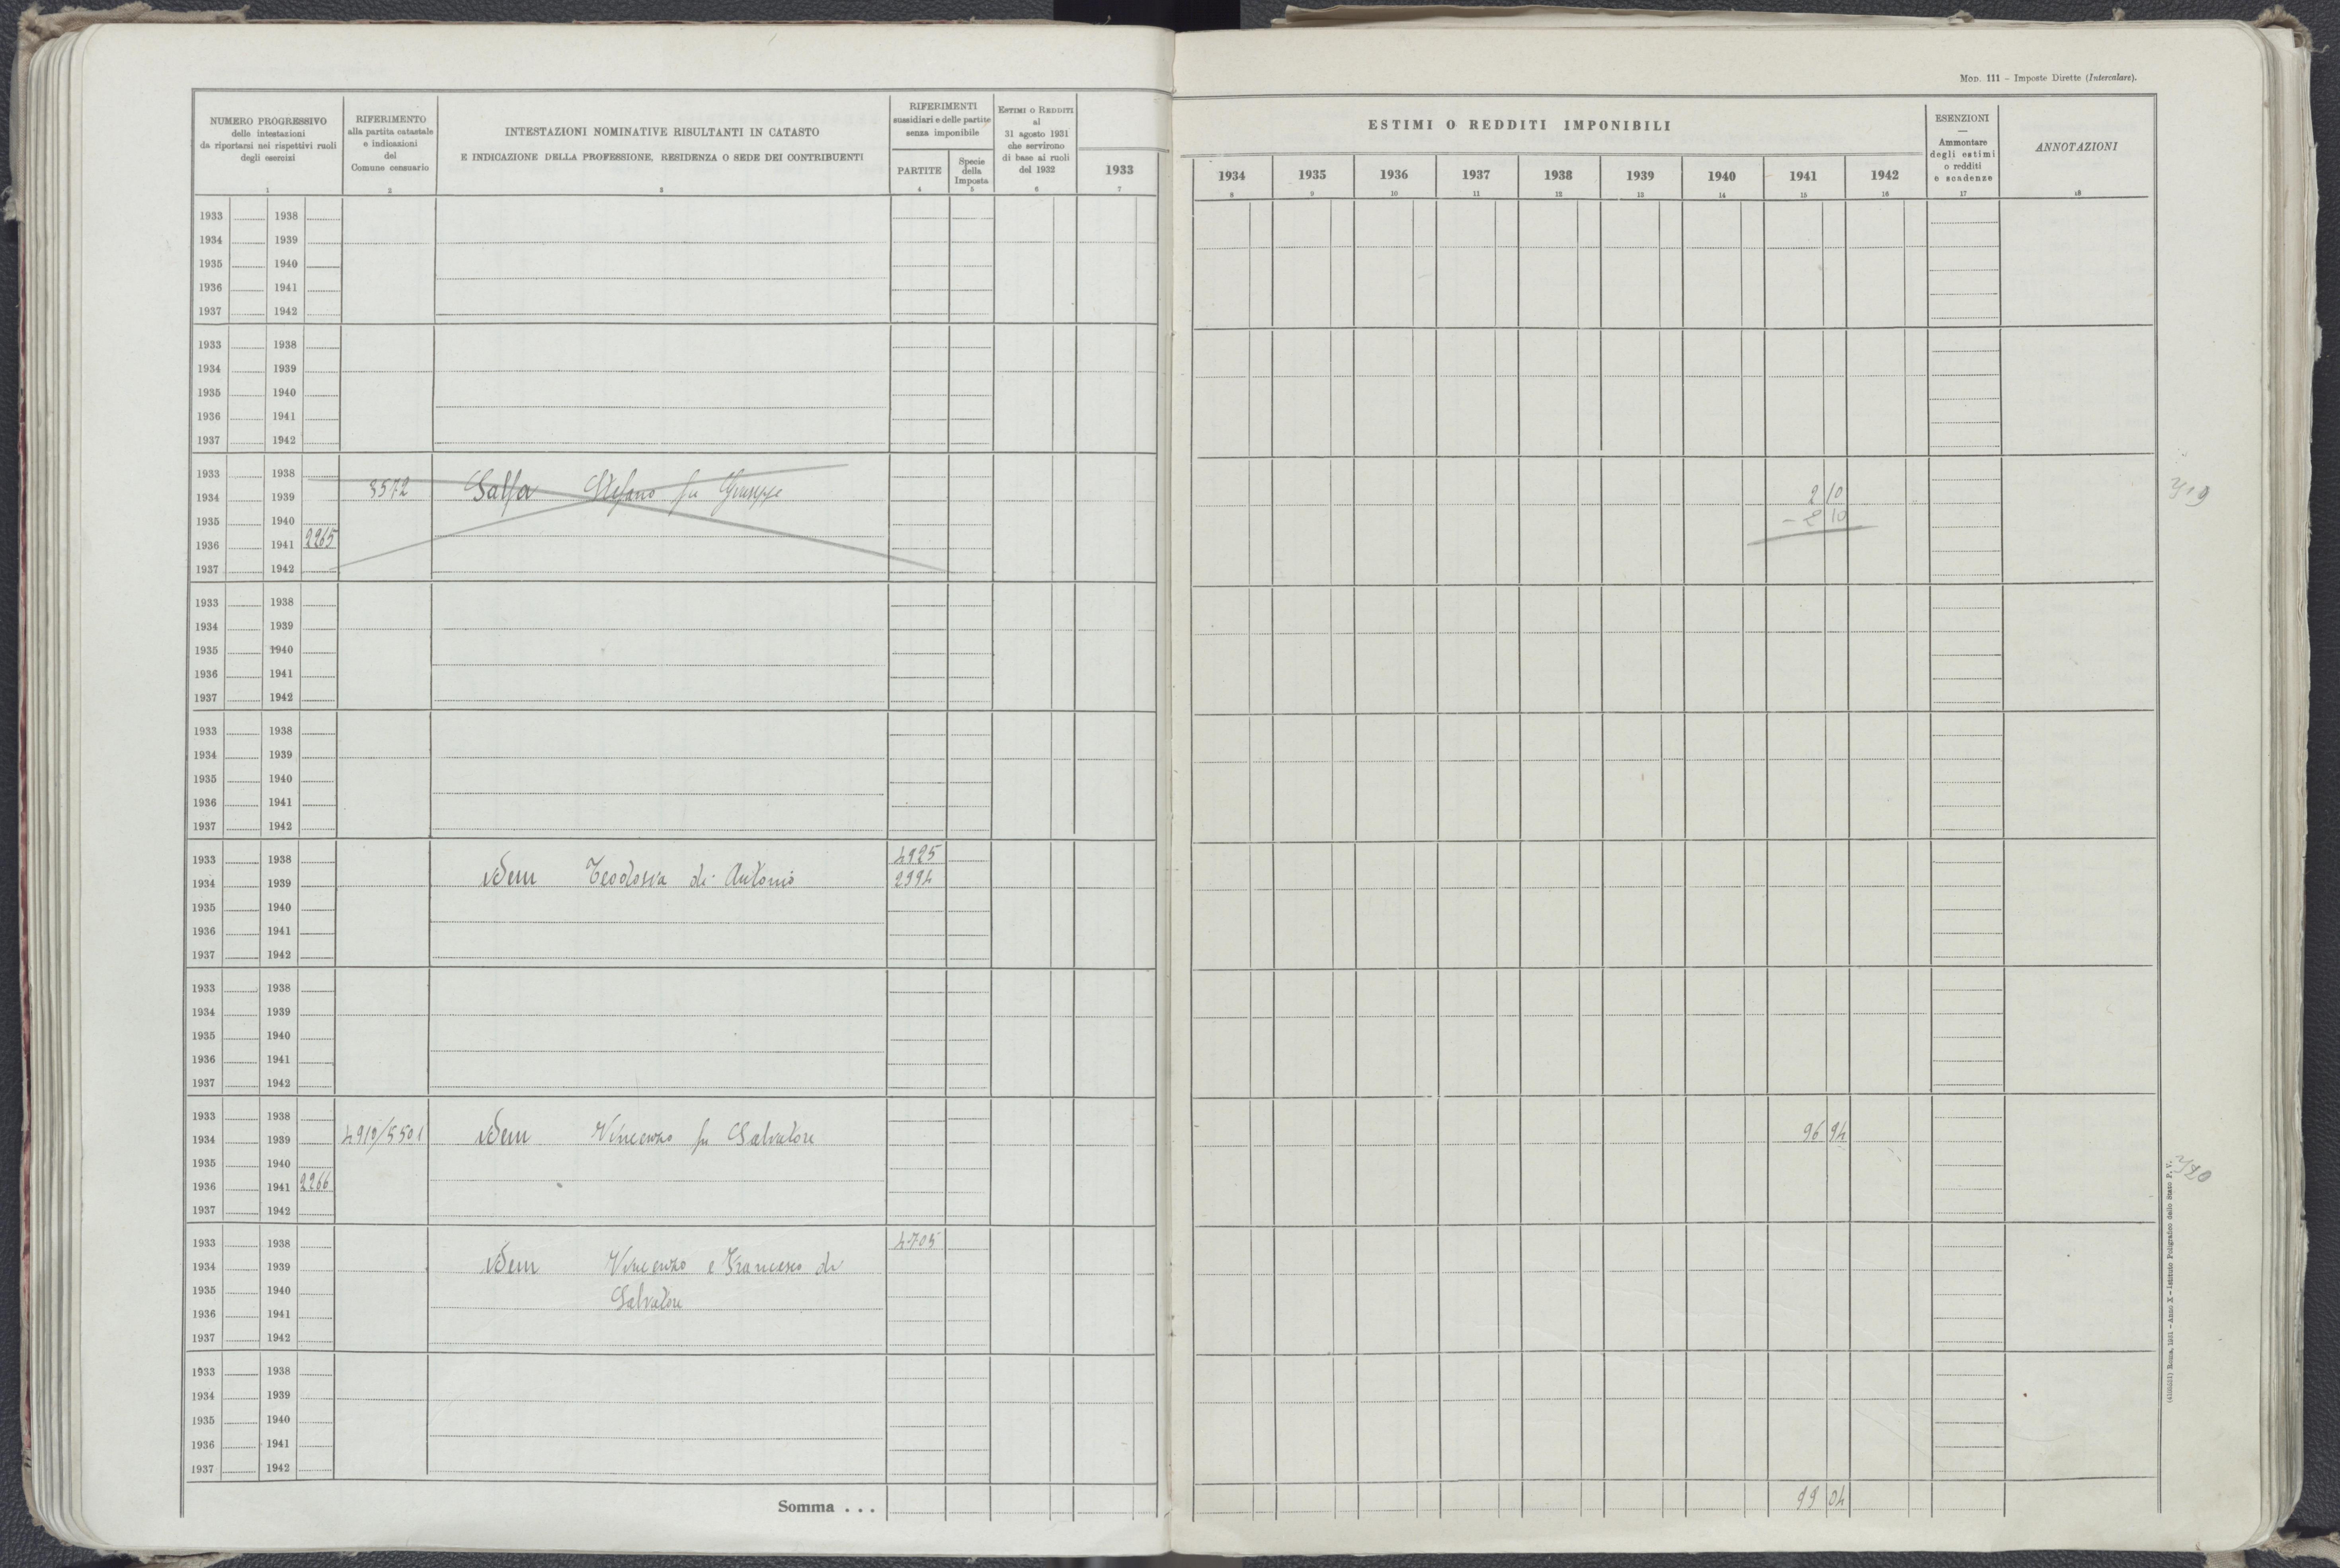 MOD. 111 – Imposte Dirette (Intercalare).
NUMERO PROGRESSIVO
delle intestazioni
da riportarsi nei rispettivi ruoli
degli esercizi
1
RIFERIMENTO
alla partita catastale
e indicazioni
del
Comune censuario
2
INTESTAZIONI NOMINATIVE RISULTANTI IN CATASTO
E INDICAZIONE DELLA PROFESSIONE, RESIDENZA O SEDE DEI CONTRIBUENTI
3
RIFERIMENTI
sussidiari e delle partite
senza imponibile
PARTITE
4
Specie
della
Imposta
5
ESTIMI O REDDITI
al
31 agosto 1931
che servirono
di base ai ruoli
del 1932
6
1933
7
ESTIMI O REDDITI IMPONIBILI
1934 1935 1936 1937 1938 1939 1940 1941 1942
8 9 10 11 12 13 14 15 16
ESENZIONI
—
Ammontare
degli estimi
o redditi
e scadenze
17
ANNOTAZIONI
18
1933 1938
1934 1939
1935 1940
1936 1941
1937 1942
1933 1938
1934 1939
1935 1940
1936 1941
1937 1942
1933 1938
1934 1939 Salfa Stefano fu Giuseppe 2 10
1935 1940 – 2 10
1936 1941 2265
1937 1942
1933 1938
1934 1939
1935 1940
1936 1941
1937 1942
1933 1938
1934 1939
1935 1940
1936 1941
1937 1942
1933 1938 4925
1934 1939 Idem Teodosia di Antonio 2994
1935 1940
1936 1941
1937 1942
1933 1938
1934 1939
1935 1940
1936 1941
1937 1942
1933 1938
1934 1939 4910/5501 Idem Vincenzo fu Salvatore 96 94
1935 1940
1936 1941 2266
1937 1942
1933 1938 4705
1934 1939 Idem Vincenzo e Francesco di
1935 1940 Salvatore
1936 1941
1937 1942
1933 1938
1934 1939
1935 1940
1936 1941
1937 1942
Somma . . . 99 04
Roma, 1931 – Anno X – Istituto Poligrafico dello Stato P. V.